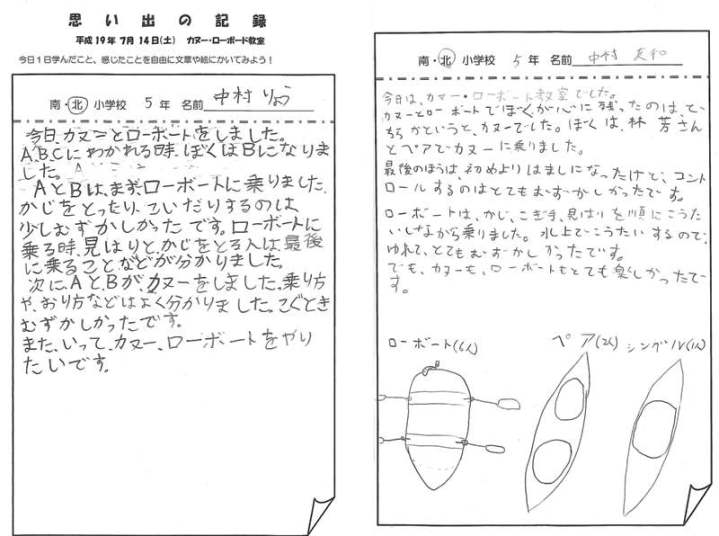 思い出の記録
平成19年7月14日(土) カヌー・ローボード教室
今日1日学んだこと、感じたことを自由に文章や絵にかいてみよう！
南・北 小学校 5年 名前 中村 りょう
今日、カヌーとローボートをしました。
A,B,Cにわかれる時、ぼくはBになりま
した。
AとBは、まずローボートに乗りました。
かじをとったり、こいだりするのは
少しむずかしかったです。ローボートに
乗る時、見はりと、かじをとる人は最後
に乗ることなどが分かりました。
次に、AとBが、カヌーをしました。乗り方
や、おり方などはよく分かりました。こぐとき
むずかしかったです。
また、いって、カヌー、ローボートをやり
たいです。
南・北 小学校 5年 名前 中村
今日は、カヌー・ローボート教室でした。
カヌーとローボートでぼくが心に残ったのは、ど
ちらかというと、カヌーでした。ぼくは、林 芳さん
とペアでカヌーに乗りました。
最後のほうは、初めよりはましになったけど、コント
ロールするのはとてもむずかしかったです。
ローボートは、かじ、こぎ手、見はりを順にこうた
いしながら乗りました。水上でこうたいするので、
ゆれて、とてもむずかしかったです。
でも、カヌーも、ローボートもとても楽しかったで
す。
ローボート(6人)
ペア(2人)
シングル(1人)